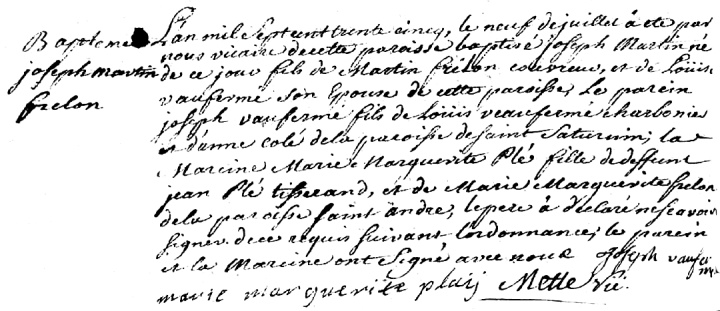 Bapteme
joseph martin
frelon
L'an mil sept cent trente cincq, le neuf de juillet à été par
nous vicaire de cette paroisse baptisé joseph Martin né
de ce jour fils de Martin frélon couvreur, et de Loüise
vaufermé son Epouse de cette paroisse, Le parein
joseph vaufermé fils de Loüis veaufermé charbonier
et d'anne colé de la paroisse de saint Saturnin; la
Mareine Marie Marguerite Plé fille de deffunt
jean Plé tisserand, et de Marie Marguerite frelon
de la paroisse saint andre, le pere à déclaré ne scavoir
signer de ce requis suivant l'ordonnance, le parein
et la Mareine ont signé avec nous Joseph vaufermé
marie marguerite plaij Mette vic.